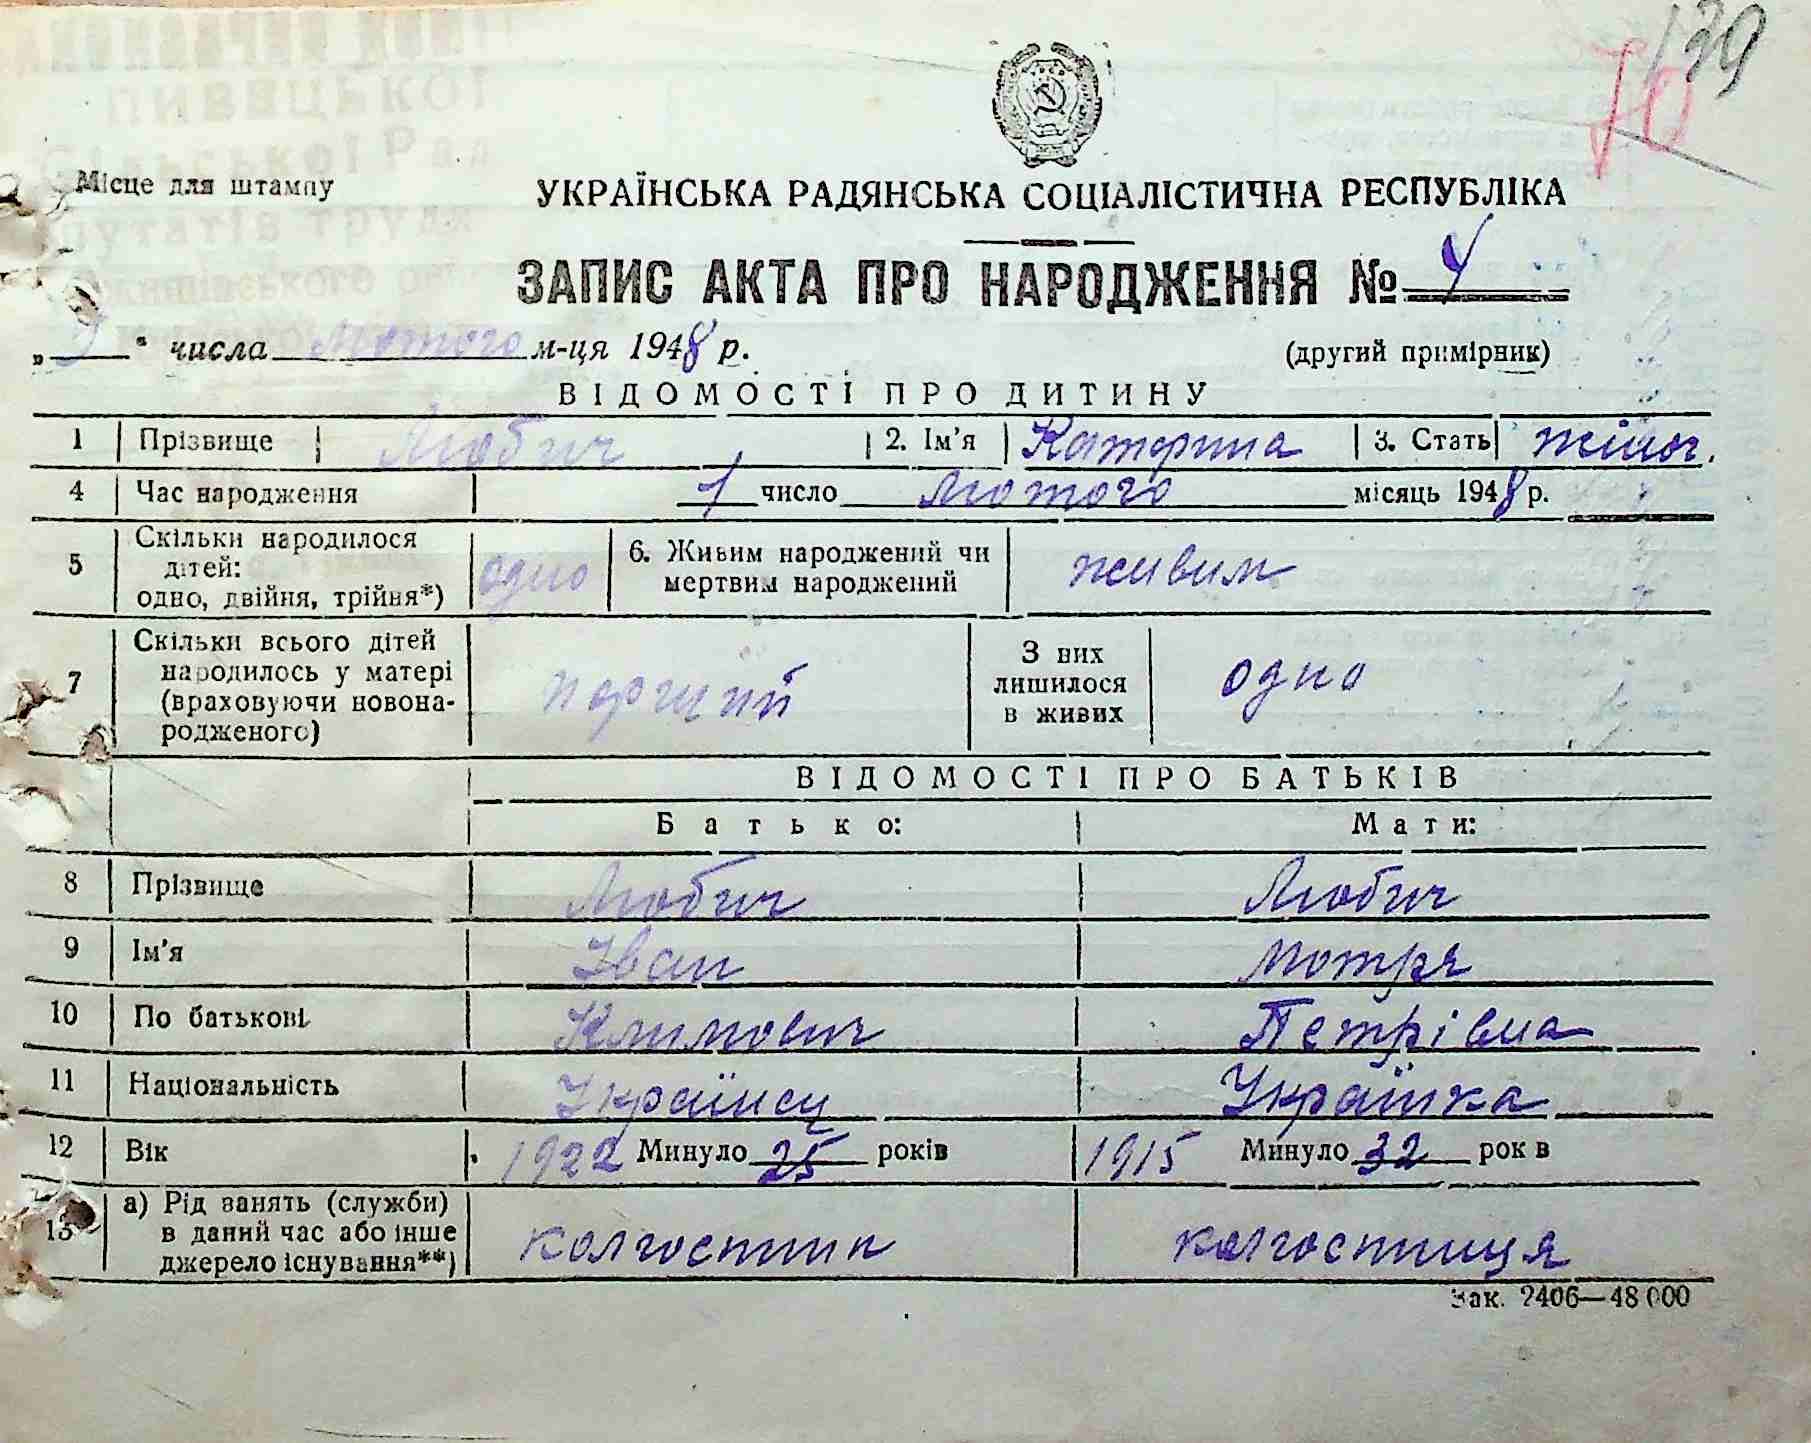 139
70
Місце для штампу
УКРАЇНСЬКА РАДЯНСЬКА СОЦІАЛІСТИЧНА РЕСПУБЛІКА
ЗАПИС АКТА ПРО НАРОДЖЕННЯ № 4
„ " числа лютого м-ця 1948 р. (другий примірник)
ВІДОМОСТІ ПРО ДИТИНУ
1 Прізвище Любич 2. Ім'я Катерина 3. Стать жіноч.
4 Час народження 1 число лютого місяць 1948 р.
5 Скільки народилося дітей: одно, двійня, трійня*) одно 6. Живим народжений чи мертвим народжений живим
7 Скільки всього дітей народилось у матері (враховуючи новонародженого) перший З них лишилося в живих одно
ВІДОМОСТІ ПРО БАТЬКІВ
Батько: Мати:
8 Прізвище Любич Любич
9 Ім'я Іван Мотря
10 По батькові Климович Петрівна
11 Національність Українец Українка
12 Вік 1922 Минуло 25 років 1915 Минуло 32 рок в
13 а) Рід занять (служби) в даний час або інше джерело існування**) колгоспник колгоспниця
Зак. 2406—48 000